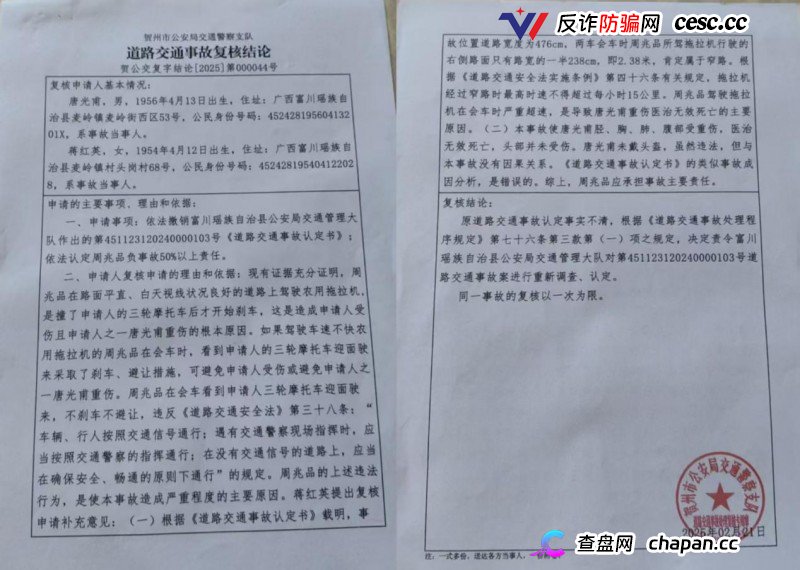 贺州市公安局交通警察支队
道路交通事故复核结论
贺公交复字结论[2025]第000044号
复核申请人基本情况：
唐光甫，男，1956年4月13日出生，住址：广西富川瑶族自
治县麦岭镇麦岭街西区53号，公民身份号码：45242819560413
201X，系事故当事人。
蒋红英，女，1954年4月12日出生，住址：广西富川瑶族自
治县麦岭镇村头岗村68号，公民身份号码：4524281954041220
28，系事故当事人。
申请的主要事项、理由和依据：
一、申请事项：依法撤销富川瑶族自治县公安局交通管理大
队作出的第451123120240000103号《道路交通事故认定书》；
依法认定周兆品负事故50%以上责任。
二、申请人复核申请的理由和依据：现有证据充分证明，周
兆品在路面平直、白天视线状况良好的道路上驾驶农用拖拉机，
是撞了申请人的三轮摩托车后才开始刹车，这是造成申请人受
伤且申请人之一唐光甫重伤的根本原因。如果驾驶车速不快农
用拖拉机的周兆品在会车时，看到申请人的三轮摩托车迎面驶
来采取了刹车、避让措施，可避免申请人受伤或避免申请人之
一唐光甫重伤。周兆品在会车看到申请人三轮摩托车迎面驶
来，不刹车不避让，违反《道路交通安全法》第三十八条：“
车辆、行人按照交通信号通行；遇有交通警察现场指挥时，应
当按照交通警察的指挥通行；在没有交通信号的道路上，应当
在确保安全、畅通的原则下通行”的规定。周兆品的上述违法
行为，是使本事故造成严重程度的主要原因。蒋红英提出复核
申请补充意见：（一）根据《道路交通事故认定书》载明，事
反诈防骗网 cesc.cc
故位置道路宽度为476cm，两车会车时周兆品所驾拖拉机行驶的
右侧路面只有路宽的一半238cm，即2.38米，肯定属于窄路。根
据《道路交通安全法实施条例》第四十六条有关规定，拖拉机
经过窄路时最高时速不得超过每小时15公里。周兆品驾驶拖拉
机在会车时严重超速，是导致唐光甫重伤医治无效死亡的主要
原因。（二）本事故使唐光甫胫、胸、肺、腹部受重伤，医治
无效死亡，头部并未受伤。唐光甫未戴头盔。虽然违法，但与
本事故没有因果关系。《道路交通事故认定书》的类似事故成
因分析，是错误的。综上，周兆品应承担事故主要责任。
复核结论：
原道路交通事故认定事实不清，根据《道路交通事故处理程
序规定》第七十六条第三款第（一）项之规定，决定责令富川
瑶族自治县公安局交通管理大队对第451123120240000103号道
路交通事故案进行重新调查、认定。
同一事故的复核以一次为限。
贺州市公安局交通警察支队
2025年02月21日
注：一式多份，送达各方当事人，一份附卷。
查盘网 chapan.cc